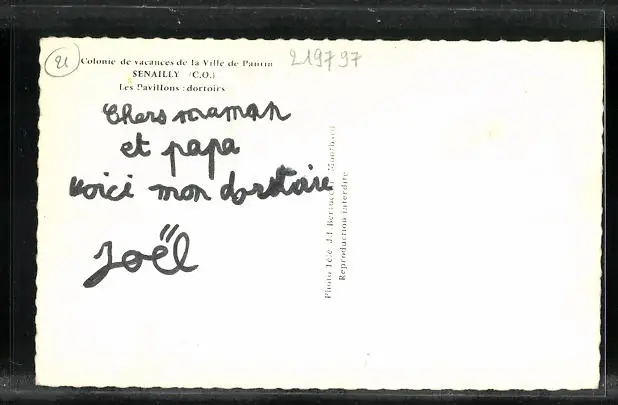 21
Colonie de vacances de la Ville de Pantin
219797
SENAILLY (C.O.)
Les Pavillons : dortoirs
Chers maman
et papa
voici mon dortoire
Joël
Reproduction interdite